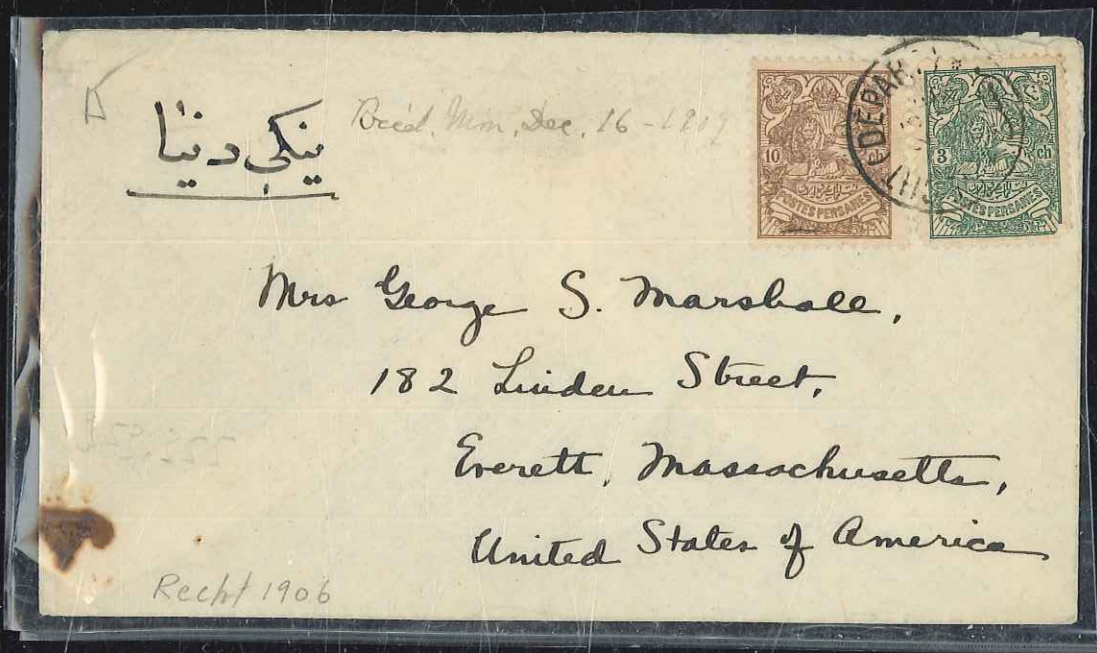 ینکی دنیا
Rec'd. Mon, Dec. 16 - 1907
10 ch
POSTES PERSANES
DEPART
3 ch
POSTES PERSANES
Mrs George S. Marshall,
182 Linden Street,
Everett, Massachusetts,
United States of America
Recht 1906